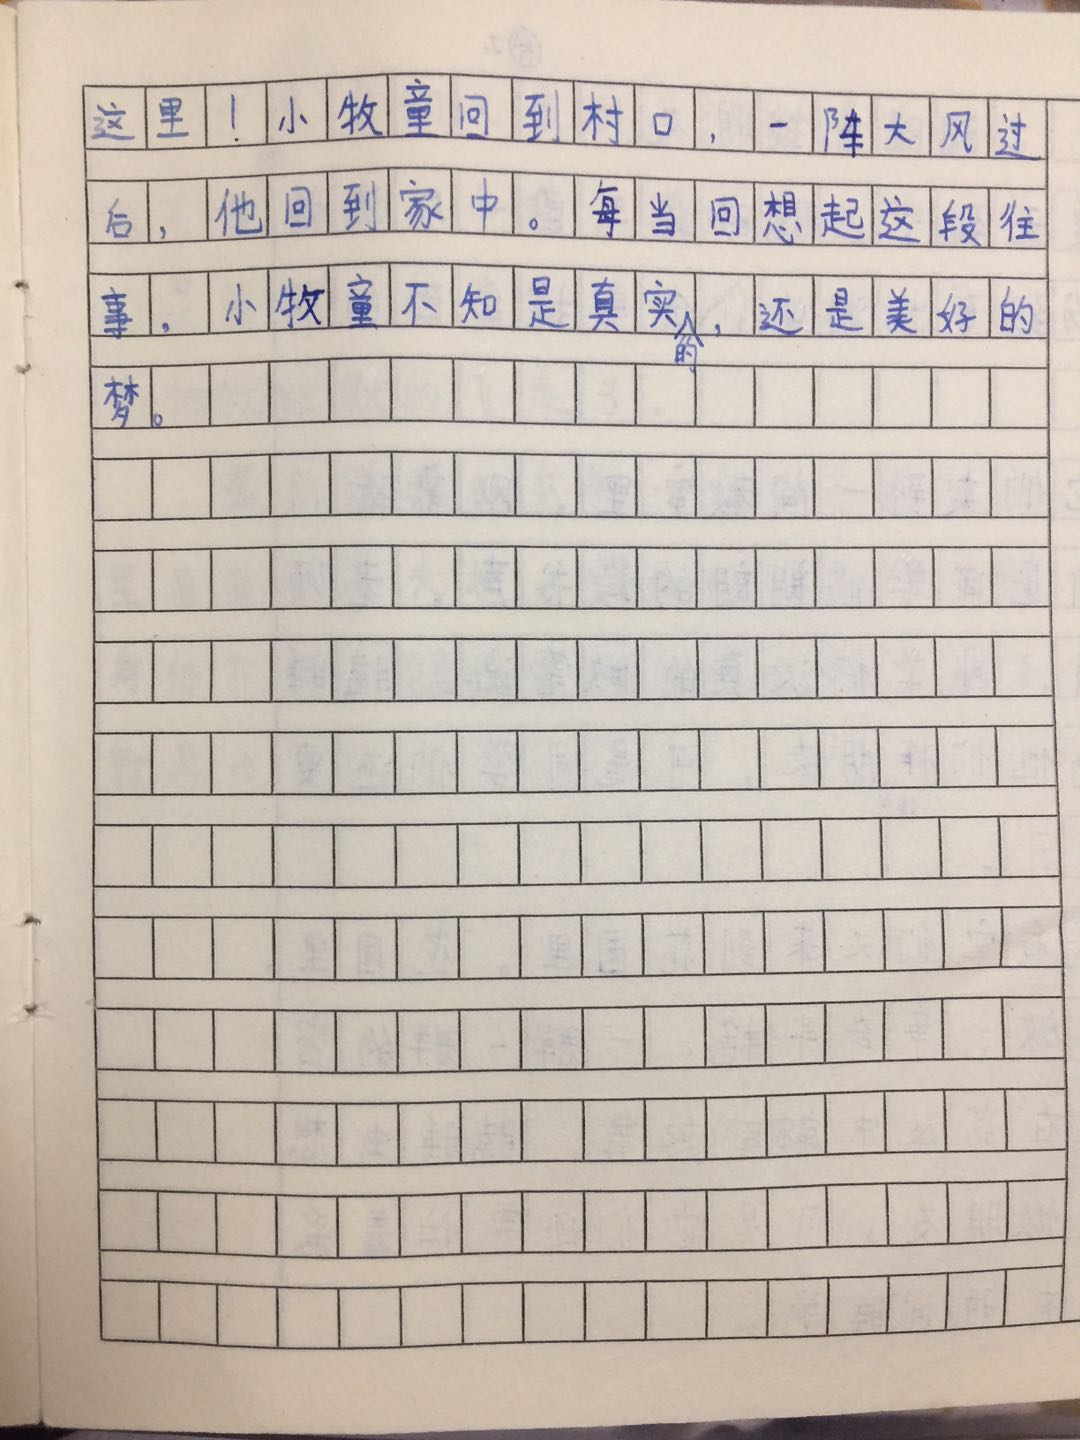 这里！小牧童回到村口，一阵大风过
后，他回到家中。每当回想起这段往
事，小牧童不知是真实的，还是美好的
梦。